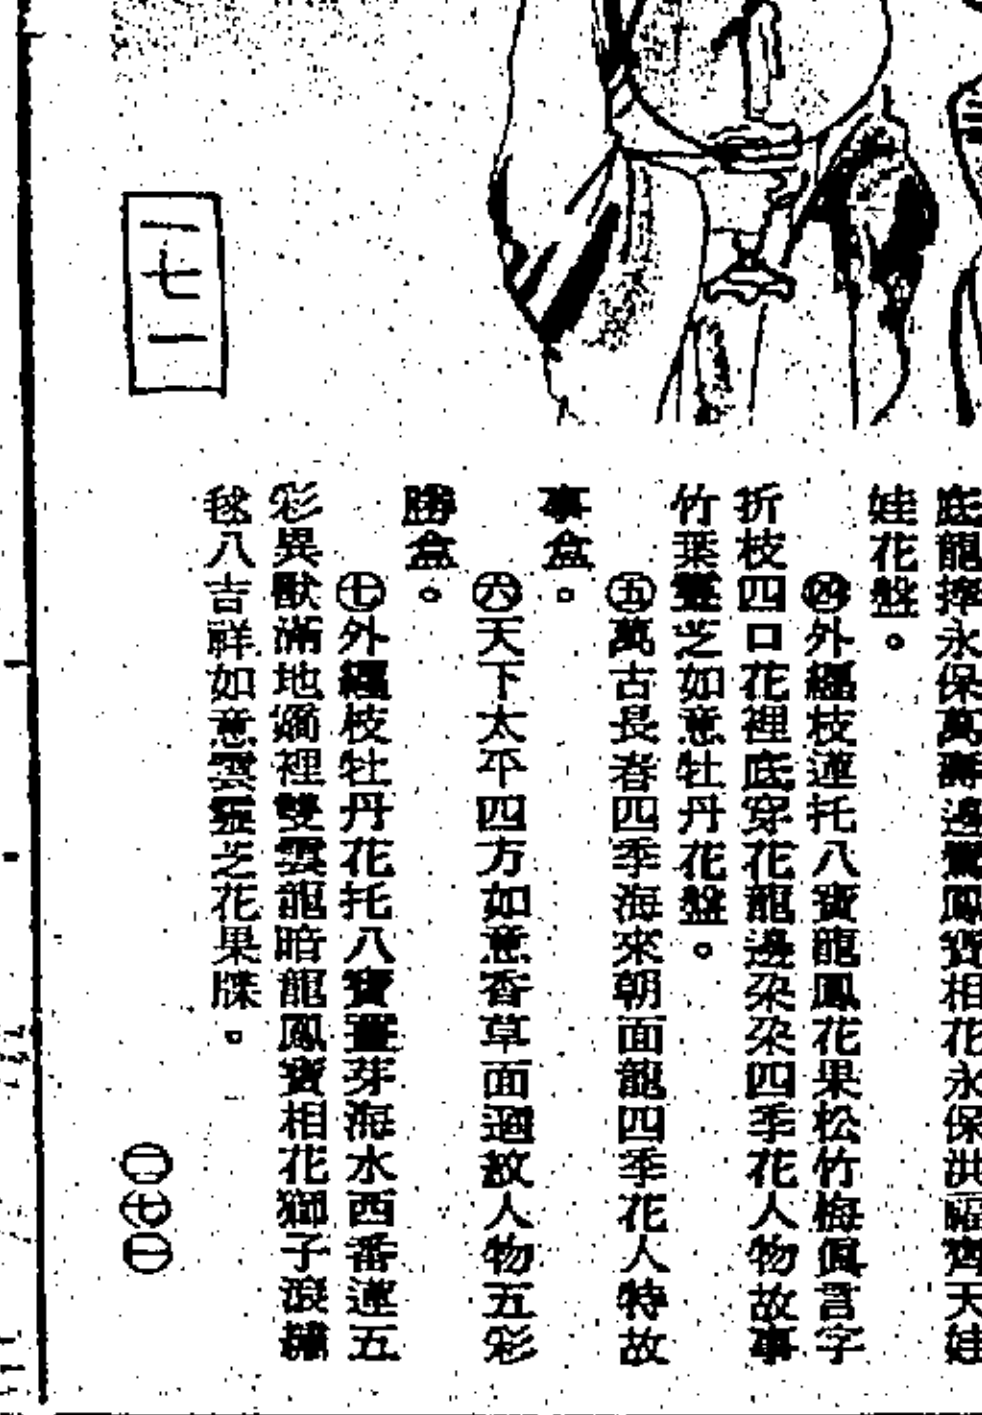 底龍捧永保萬壽邊鸞鳳寶相花永保洪福齊天娃
娃花盤。
㊃外纏枝蓮托八寶龍鳳花果松竹梅眞言字
折枝四口花裡底穿花龍邊朶朶四季花人物故事
竹葉靈芝如意牡丹花盤。
㊄萬古長春四季海來朝面龍四季花人特故
事盒。
㊅天下太平四方如意香草面迴故人物五彩
勝盒。
㊆外纏枝牡丹花托八寶薑芽海水西番蓮五
彩異獸滿地嬌裡雙雲龍暗龍鳳寶相花獅子滾繡
毬八吉祥如意雲靈芝花果牒。
一七一
㊁㊆㊀